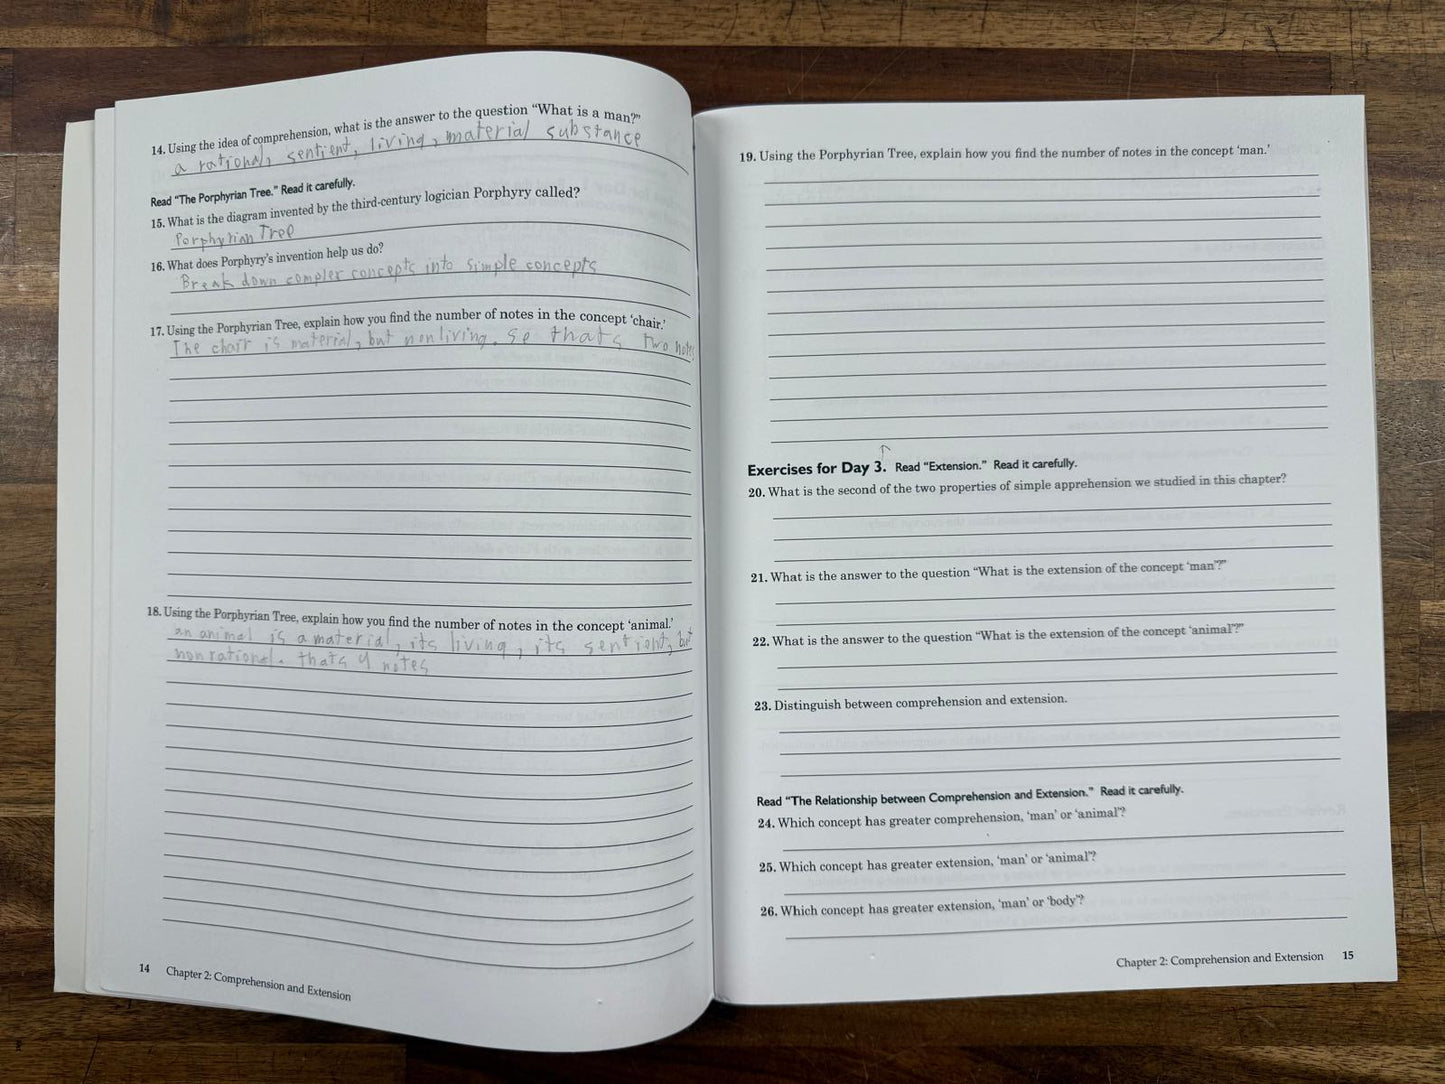 14. Using the idea of comprehension, what is the answer to the question “What is a man?”
a rational, sentient, living, material substance
Read “The Porphyrian Tree.” Read it carefully.
15. What is the diagram invented by the third-century logician Porphyry called?
Porphyrian Tree
16. What does Porphyry’s invention help us do?
Break down complex concepts into simple concepts
17. Using the Porphyrian Tree, explain how you find the number of notes in the concept ‘chair.’
The chair is material, but nonliving. so thats two notes
18. Using the Porphyrian Tree, explain how you find the number of notes in the concept ‘animal.’
an animal is a material, its living, its sentient, but
nonrational. thats 4 notes
14 Chapter 2: Comprehension and Extension
19. Using the Porphyrian Tree, explain how you find the number of notes in the concept ‘man.’
Exercises for Day 3. Read “Extension.” Read it carefully.
20. What is the second of the two properties of simple apprehension we studied in this chapter?
21. What is the answer to the question “What is the extension of the concept ‘man’?”
22. What is the answer to the question “What is the extension of the concept ‘animal’?”
23. Distinguish between comprehension and extension.
Read “The Relationship between Comprehension and Extension.” Read it carefully.
24. Which concept has greater comprehension, ‘man’ or ‘animal’?
25. Which concept has greater extension, ‘man’ or ‘animal’?
26. Which concept has greater extension, ‘man’ or ‘body’?
Chapter 2: Comprehension and Extension 15